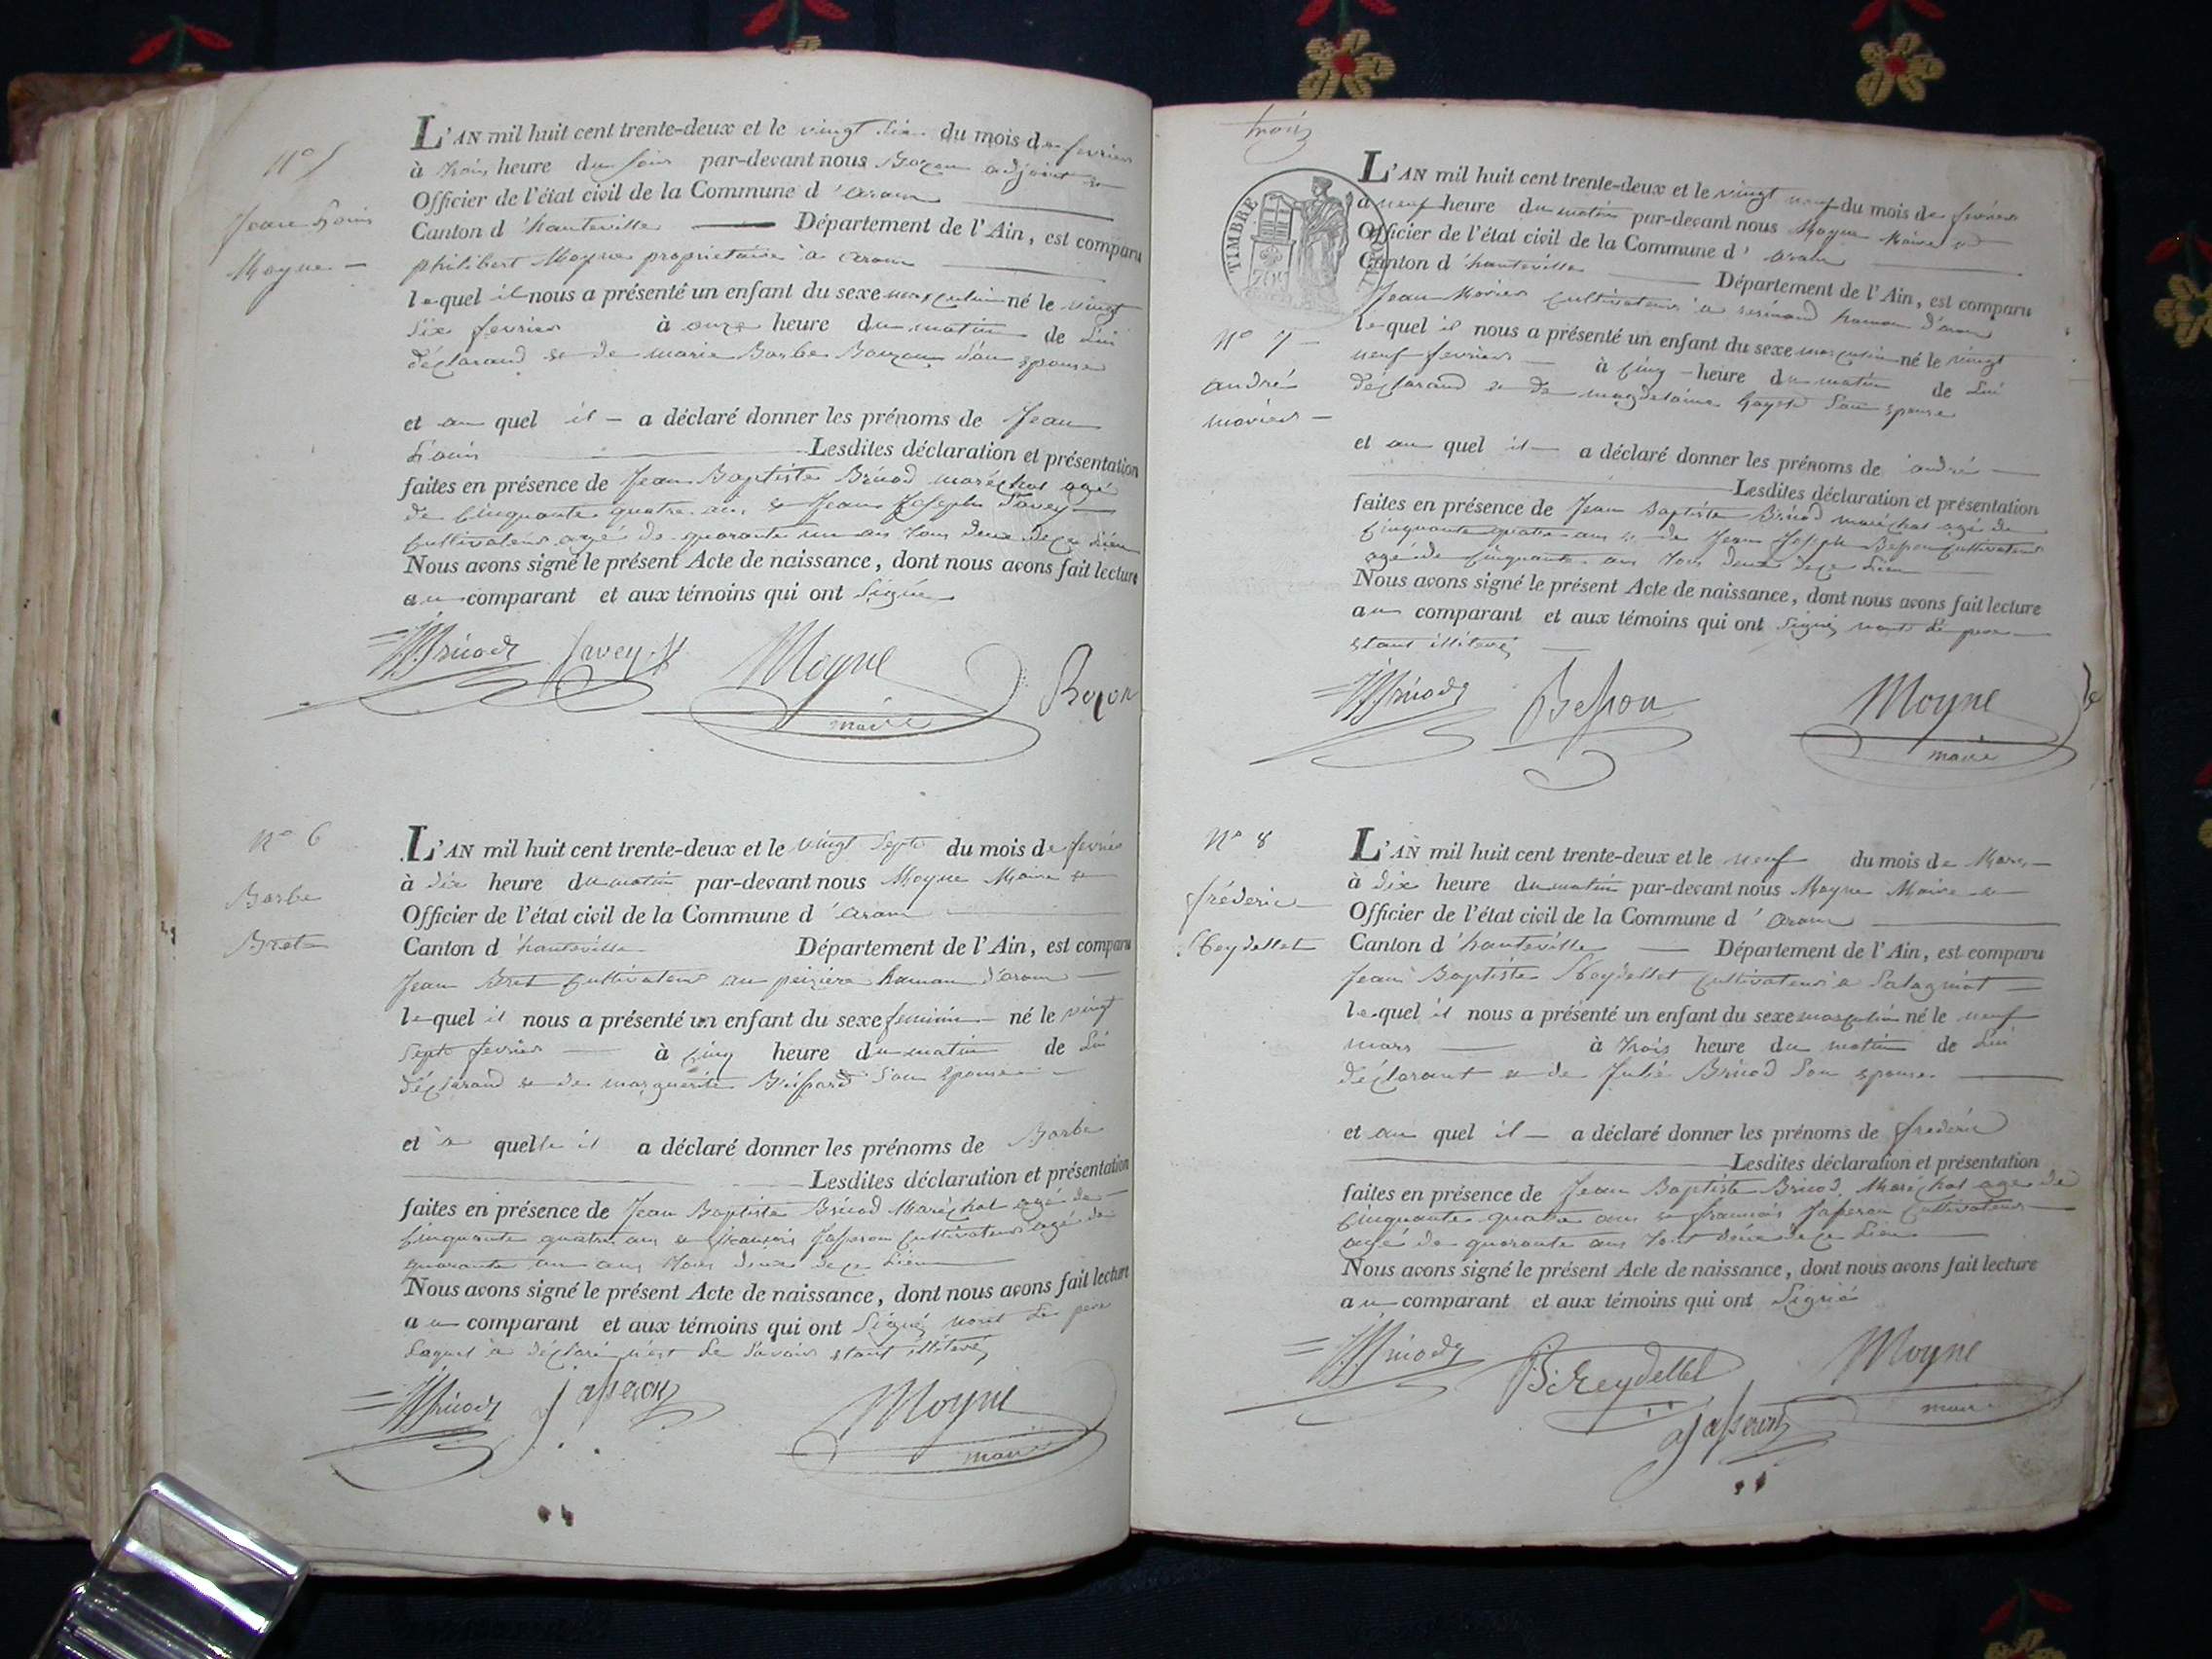 N° 5
Jean Louis
Moyne
L'AN mil huit cent trente-deux et le vingt six du mois de fevrier
à trois heure du soir par-devant nous Bozon adjoint et
Officier de l'état civil de la Commune d'aranc
Canton d'hauteville Département de l'Ain, est comparu
philibert Moyne proprietaire à aranc
lequel il nous a présenté un enfant du sexe masculin né le vingt
six fevrier à onze heure du matin de Lui
déclarand et de marie Barbe son epouse
et au quel il a déclaré donner les prénoms de Jean
Louis Lesdites déclaration et présentation
faites en présence de Jean Baptiste Bruod maréchal agé
de Cinquante quatre ans et Jean Joseph Savey
Cultivateur agé de quarante un ans tous deux de ce Lieu
Nous avons signé le présent Acte de naissance, dont nous avons fait lecture
au comparant et aux témoins qui ont Signé
JBBruod Savey Moyne Bozon
maire
N° 6
Barbe
Bret
L'AN mil huit cent trente-deux et le vingt Sept du mois de fevrier
à dix heure du matin par-devant nous Moyne Maire et
Officier de l'état civil de la Commune d'aranc
Canton d'hauteville Département de l'Ain, est comparu
Jean Bret Cultivateur au hamau d'aranc
lequel il nous a présenté un enfant du sexe feminin né le vingt
Sept fevrier à Cinq heure du matin de Lui
déclarand et de marguerite son Epouse
et a quelle il a déclaré donner les prénoms de Barbe
Lesdites déclaration et présentation
faites en présence de Jean Baptiste Bruod Maréchal agé de
Cinquante quatre ans et francois Jasseron Cultivateur agé de
quarante un ans tous deux de ce Lieu
Nous avons signé le présent Acte de naissance, dont nous avons fait lecture
au comparant et aux témoins qui ont Signé non Le pere
Lequel à déclaré Le Savoir etant illiteré
JBBruod Jasseron Moyne
maire
trois
TIMBRE
ROYAL
70c
N° 7
andré
moriers
L'AN mil huit cent trente-deux et le vingt neuf du mois de fevrier
à neuf heure du matin par-devant nous Moyne Maire et
Officier de l'état civil de la Commune d'aranc
Canton d'hauteville Département de l'Ain, est comparu
Jean Cultivateur à resinand hamau d'aranc
lequel il nous a présenté un enfant du sexe masculin né le vingt
neuf fevrier à Cinq heure du matin de Lui
déclarand et de magdelaine son epouse
et au quel il a déclaré donner les prénoms de andré
Lesdites déclaration et présentation
faites en présence de Jean Baptiste Bruod maréchal agé de
Cinquante quatre ans et de Jean Joseph Besson Cultivateur
agé de Cinquante ans tous deux de ce Lieu
Nous avons signé le présent Acte de naissance, dont nous avons fait lecture
au comparant et aux témoins qui ont signé non Le pere
etant illiteré
JBBruod Besson Moyne
maire
N° 8
fréderic
Reydellet
L'AN mil huit cent trente-deux et le neuf du mois de Mars
à dix heure du matin par-devant nous Moyne Maire et
Officier de l'état civil de la Commune d'aranc
Canton d'hauteville Département de l'Ain, est comparu
Jean Baptiste Reydellet Cultivateur à
lequel il nous a présenté un enfant du sexe masculin né le neuf
mars à trois heure du matin de Lui
déclarant et de Julie Bruod son epouse
et au quel il a déclaré donner les prénoms de frederic
Lesdites déclaration et présentation
faites en présence de Jean Baptiste Bruod Maréchal agé de
Cinquante quatre ans et francois Jasseron Cultivateur
agé de quarante ans tout deux de ce Lieu
Nous avons signé le présent Acte de naissance, dont nous avons fait lecture
au comparant et aux témoins qui ont Signé
JBBruod Reydellet Moyne
maire
Jasseron